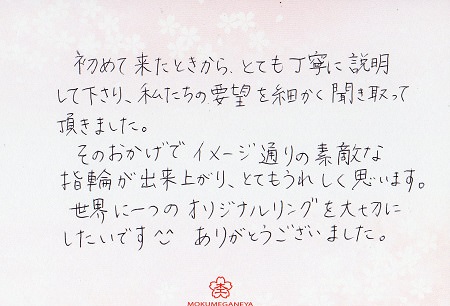 初めて来たときから、とても丁寧に説明
して下さり、私たちの要望を細かく聞き取って
頂きました。
そのおかげでイメージ通りの素敵な
指輪が出来上がり、とてもうれしく思います。
世界に一つのオリジナルリングを大切に
したいです^^ ありがとうございました。
MOKUMEGANEYA